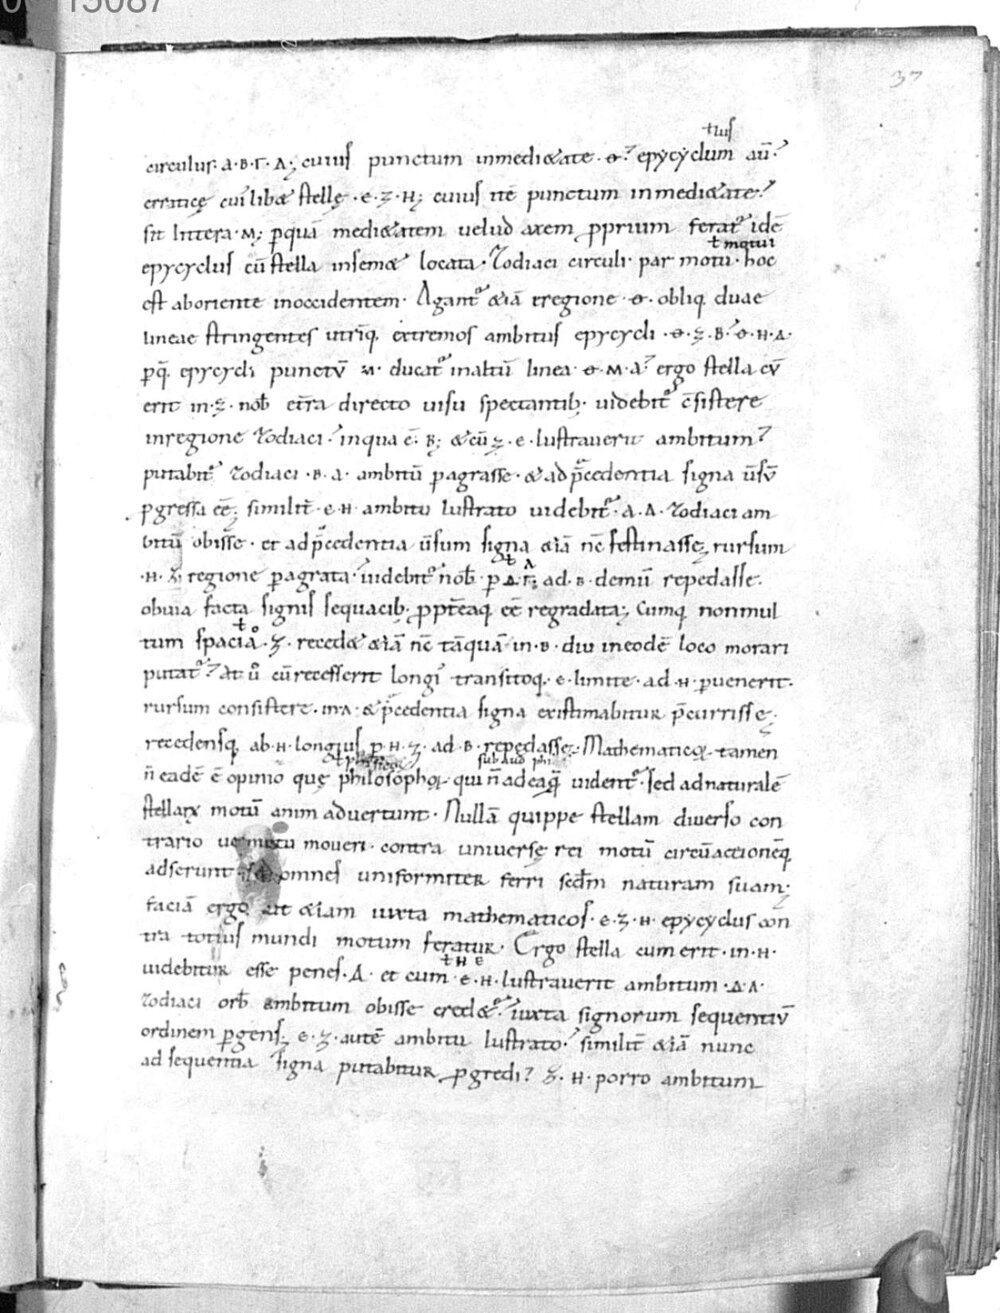 15087
37
ƚ ius
circulus · a · B · Γ · Λ; cuius punctum inmedi&ate · ɵ · epẏcẏclum aū ·
erraticę cuilib& stellę · e · z · H; cuius itē punctum inmedi&ate ·
sit littera · M; p quā medi&atem uelud axem pprium ferat idē
ƚ motui
epycyclus cū stella insem& locata · Zodiaci circuli · par motū · hoc
est aboriente inoccidentem · Agant &iā eregione · ɵ · obliq duae
lineae stringentes utriq extremos ambitus epycycli · ɵ · z · B · ɵ · H · Δ ·
pq epycycli punctū M · ducat inaltū linea · ɵ · M · A · ergo stella cū
erit in · z · nob eƚra directo uisu spectantib · uidebit c̄sistere
inregione zodiaci · inqua ē · B; & cū z · e · lustrauerit ambitum
putabit zodiaci · B · A · ambitū pagrasse · & ad p̄cedentia signa ūsū
pgressa eē; similit · e · H · ambitu lustrato uidebit · A · Λ · zodiaci am
bitū obisse · et ad p̄cedentia ūsum signa &iā nē festinasse; rursum
· H · z · regione pagrata · uidebit nob · p Δ · Γ; ad · B · demū repedasse ·
obuia facta signis sequacib; ppt̄eaq eē regradata; Cumq nonmul
tum spacia · z · reced& &iā nē tāquā in · B · diu ineodē loco morari
putat · At ū cū recesserit longi transitoq · e · limite · ad · H · puenerit ·
rursum consistere · in Λ · & p̄cedentia signa existimabitur p̄currisse;
recedensq ab · H · longius p · H · z · ad · B · repedasse; Mathematicoꝝ tamen
subaud phi
n̄ eadē ē opinio quę philosophoꝝ qui n̄ adeaq uident · sed adnaturalē
stellaꝝ motū animaduertunt · Nullā quippe stellam diuerso con
trario ue motu moueri · contra uniuersę rei motū circūactionēq
adserunt sed omnes uniformiter ferri scdm naturam suam ·
faciā ergo ut &iam iuxta mathematicos · e · z · H · epycyclus con
tra totius mundi motum feratur · Ergo stella cum erit · in · H ·
ƚ H e
uidebitur esse penes · Δ · et cum · e · H · lustrauerit ambitum · Δ Λ ·
zodiaci orƀ ambitum obisse cred& · iuxta signorum sequentiū
ordinem pgens; e · z · autē ambitu lustrato · similit &iā nunc
ad sequentia signa putabitur pgredi · z · H · porro ambitum